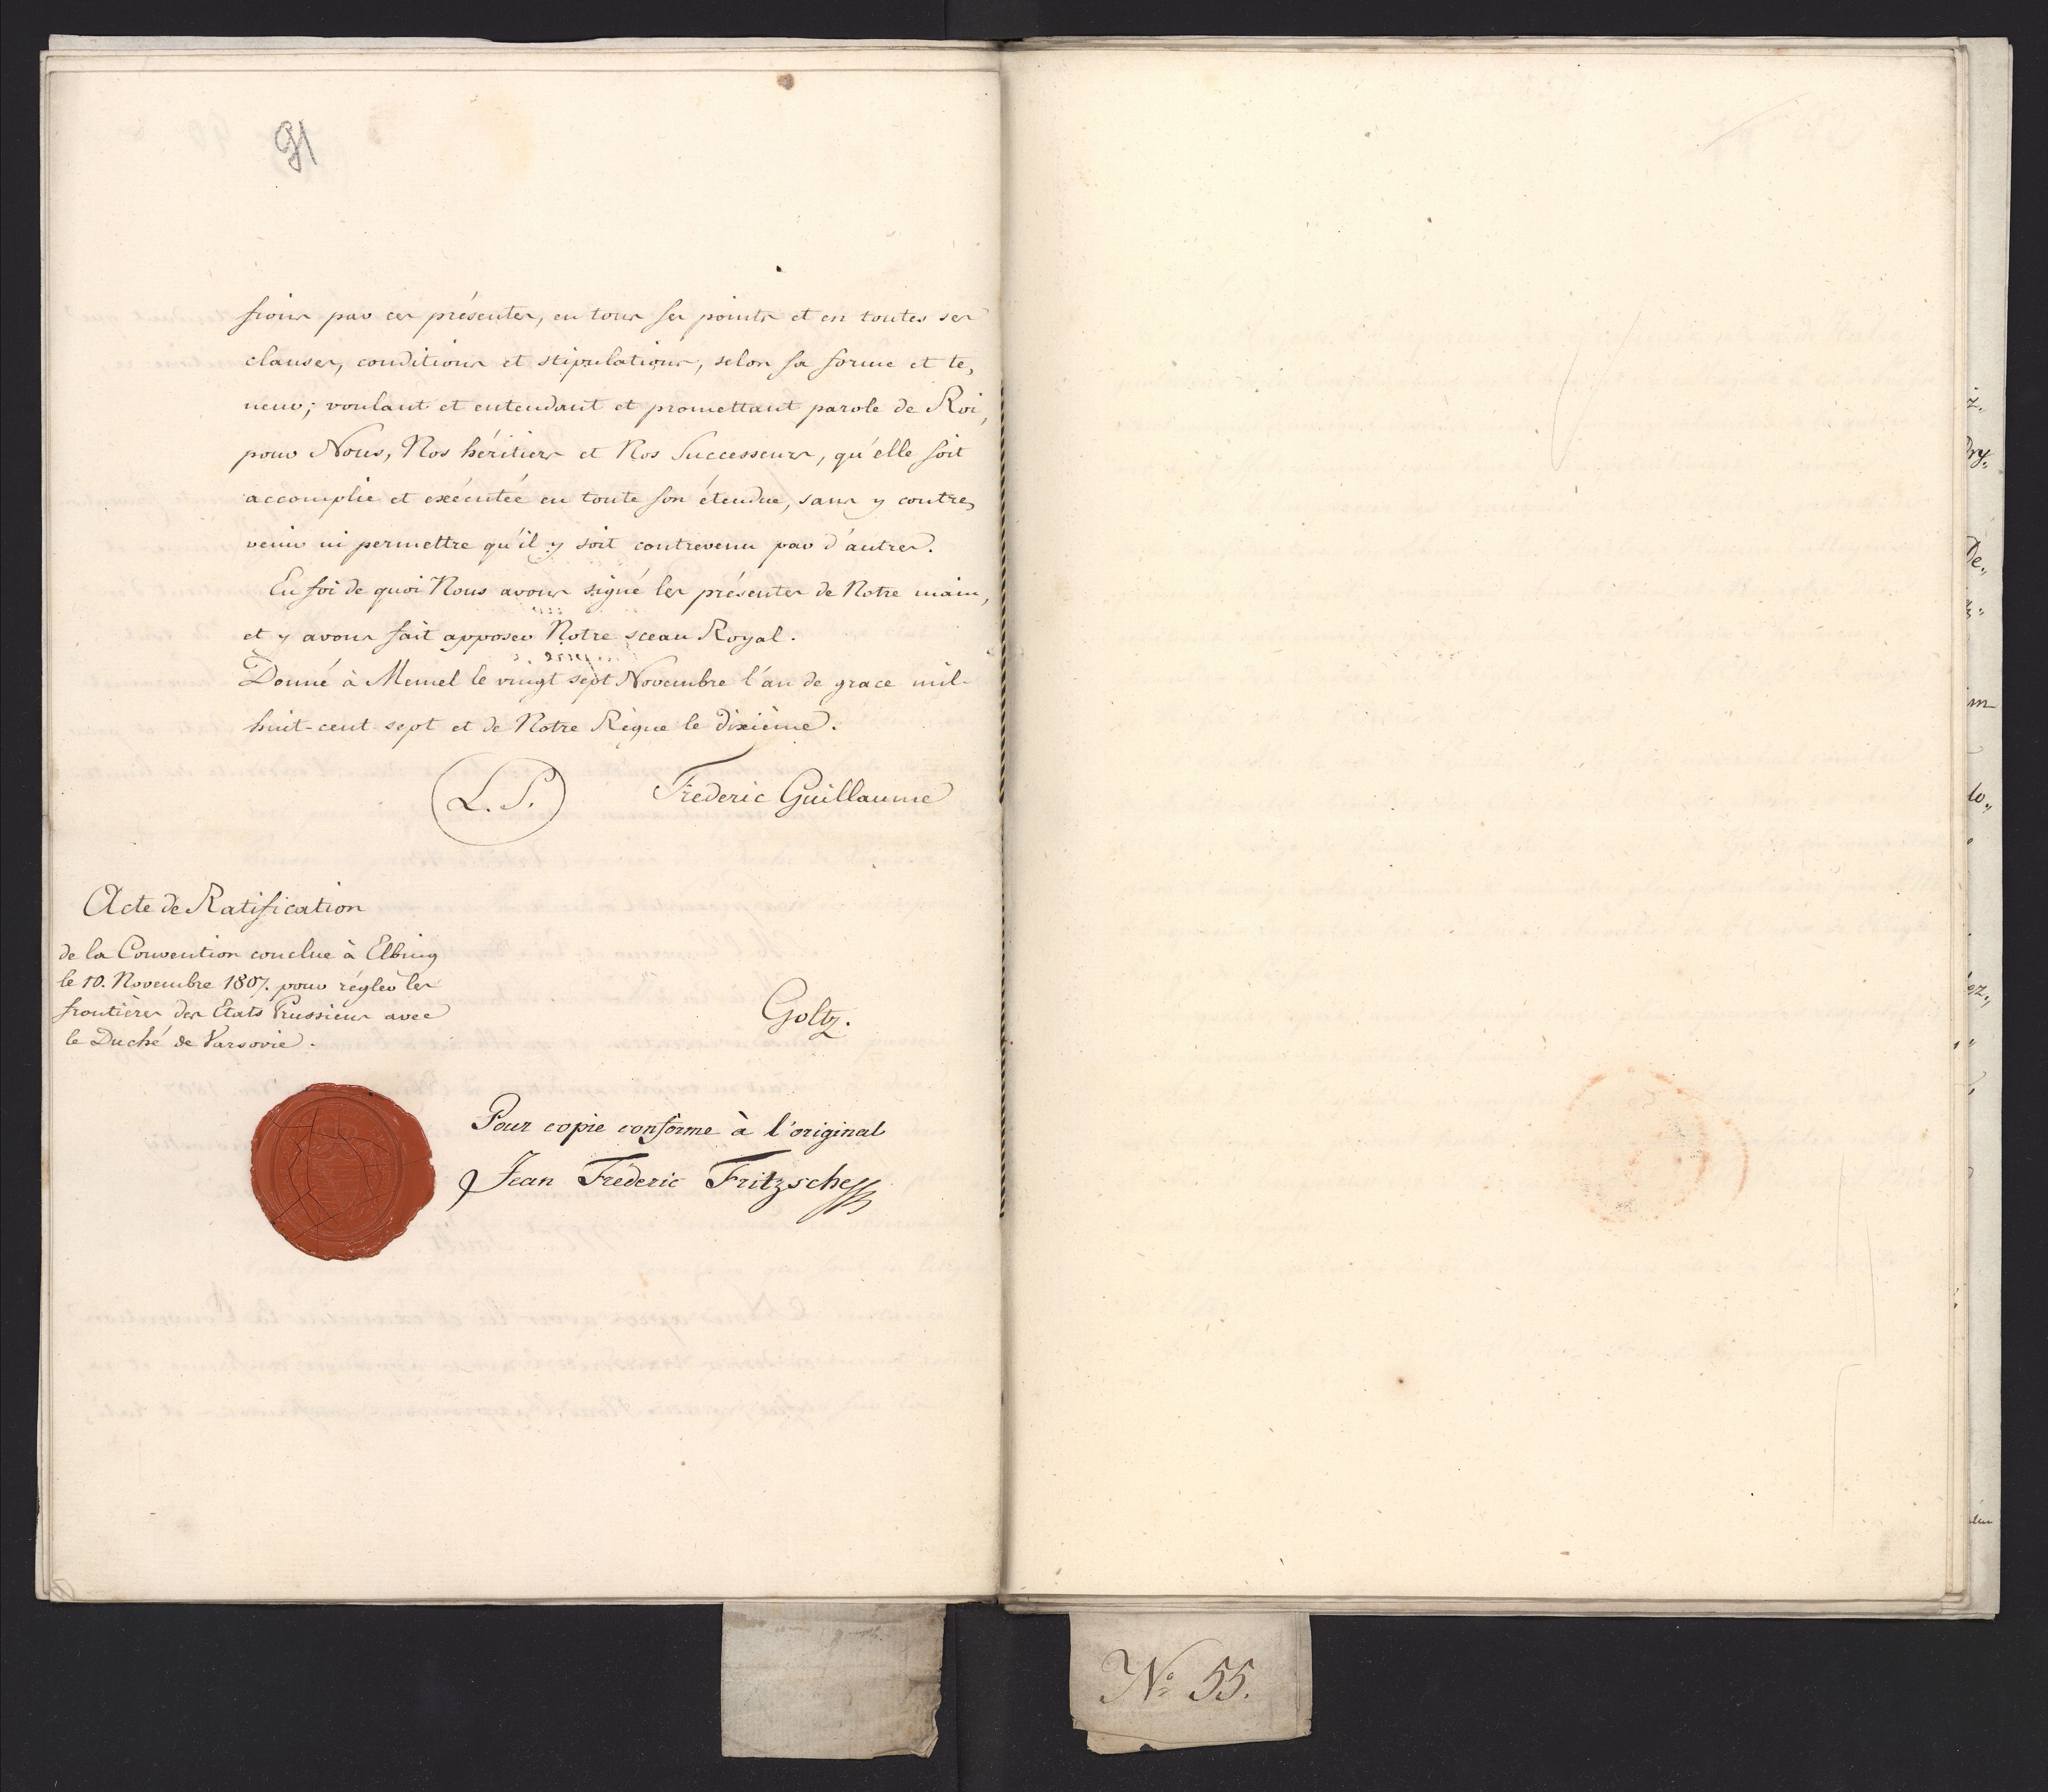 91
fions par ces présentes, en tous ses points et en toutes ses
clauses, conditions et stipulations, selon sa forme et te,
neur; voulant et entendant et promettant parole de Roi,
pour Nous, Nos héritiers et Nos Successeurs, qu'elle soit
accomplie et exécutée en toute son étendue, sans y contre,
venir ni permettre qu'il y soit contrevenu par d'autres.
En foi de quoi Nous avons signé les présentes de Notre main,
et y avons fait apposer Notre sceau Royal.
Donné à Memel le vingt sept Novembre l'an de grace mil-
huit-cent sept et de Notre Règne le dixième.
L. S.
Frederic Guillaume
Acte de Ratification
de la Convention conclue à Elbing
le 10. Novembre 1807. pour régler les
frontières des Etats Prussiens avec
le Duché de Varsovie.
Goltz.
Pour copie conforme à l'original
Jean Frederic Fritzsche
No 55.